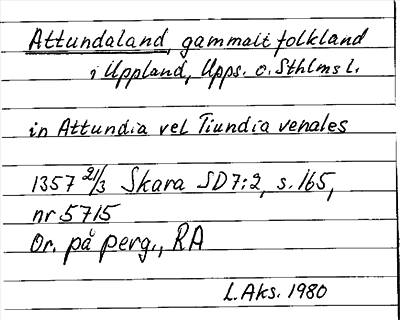 Attundaland, gammalt folkland
i Uppland, Upps. o. Sthlms l.
in Attundia vel Tiundia venales
1357 21/3 Skara SD7:2, s. 165,
nr 5715
Or. på perg., RA
L. Aks. 1980